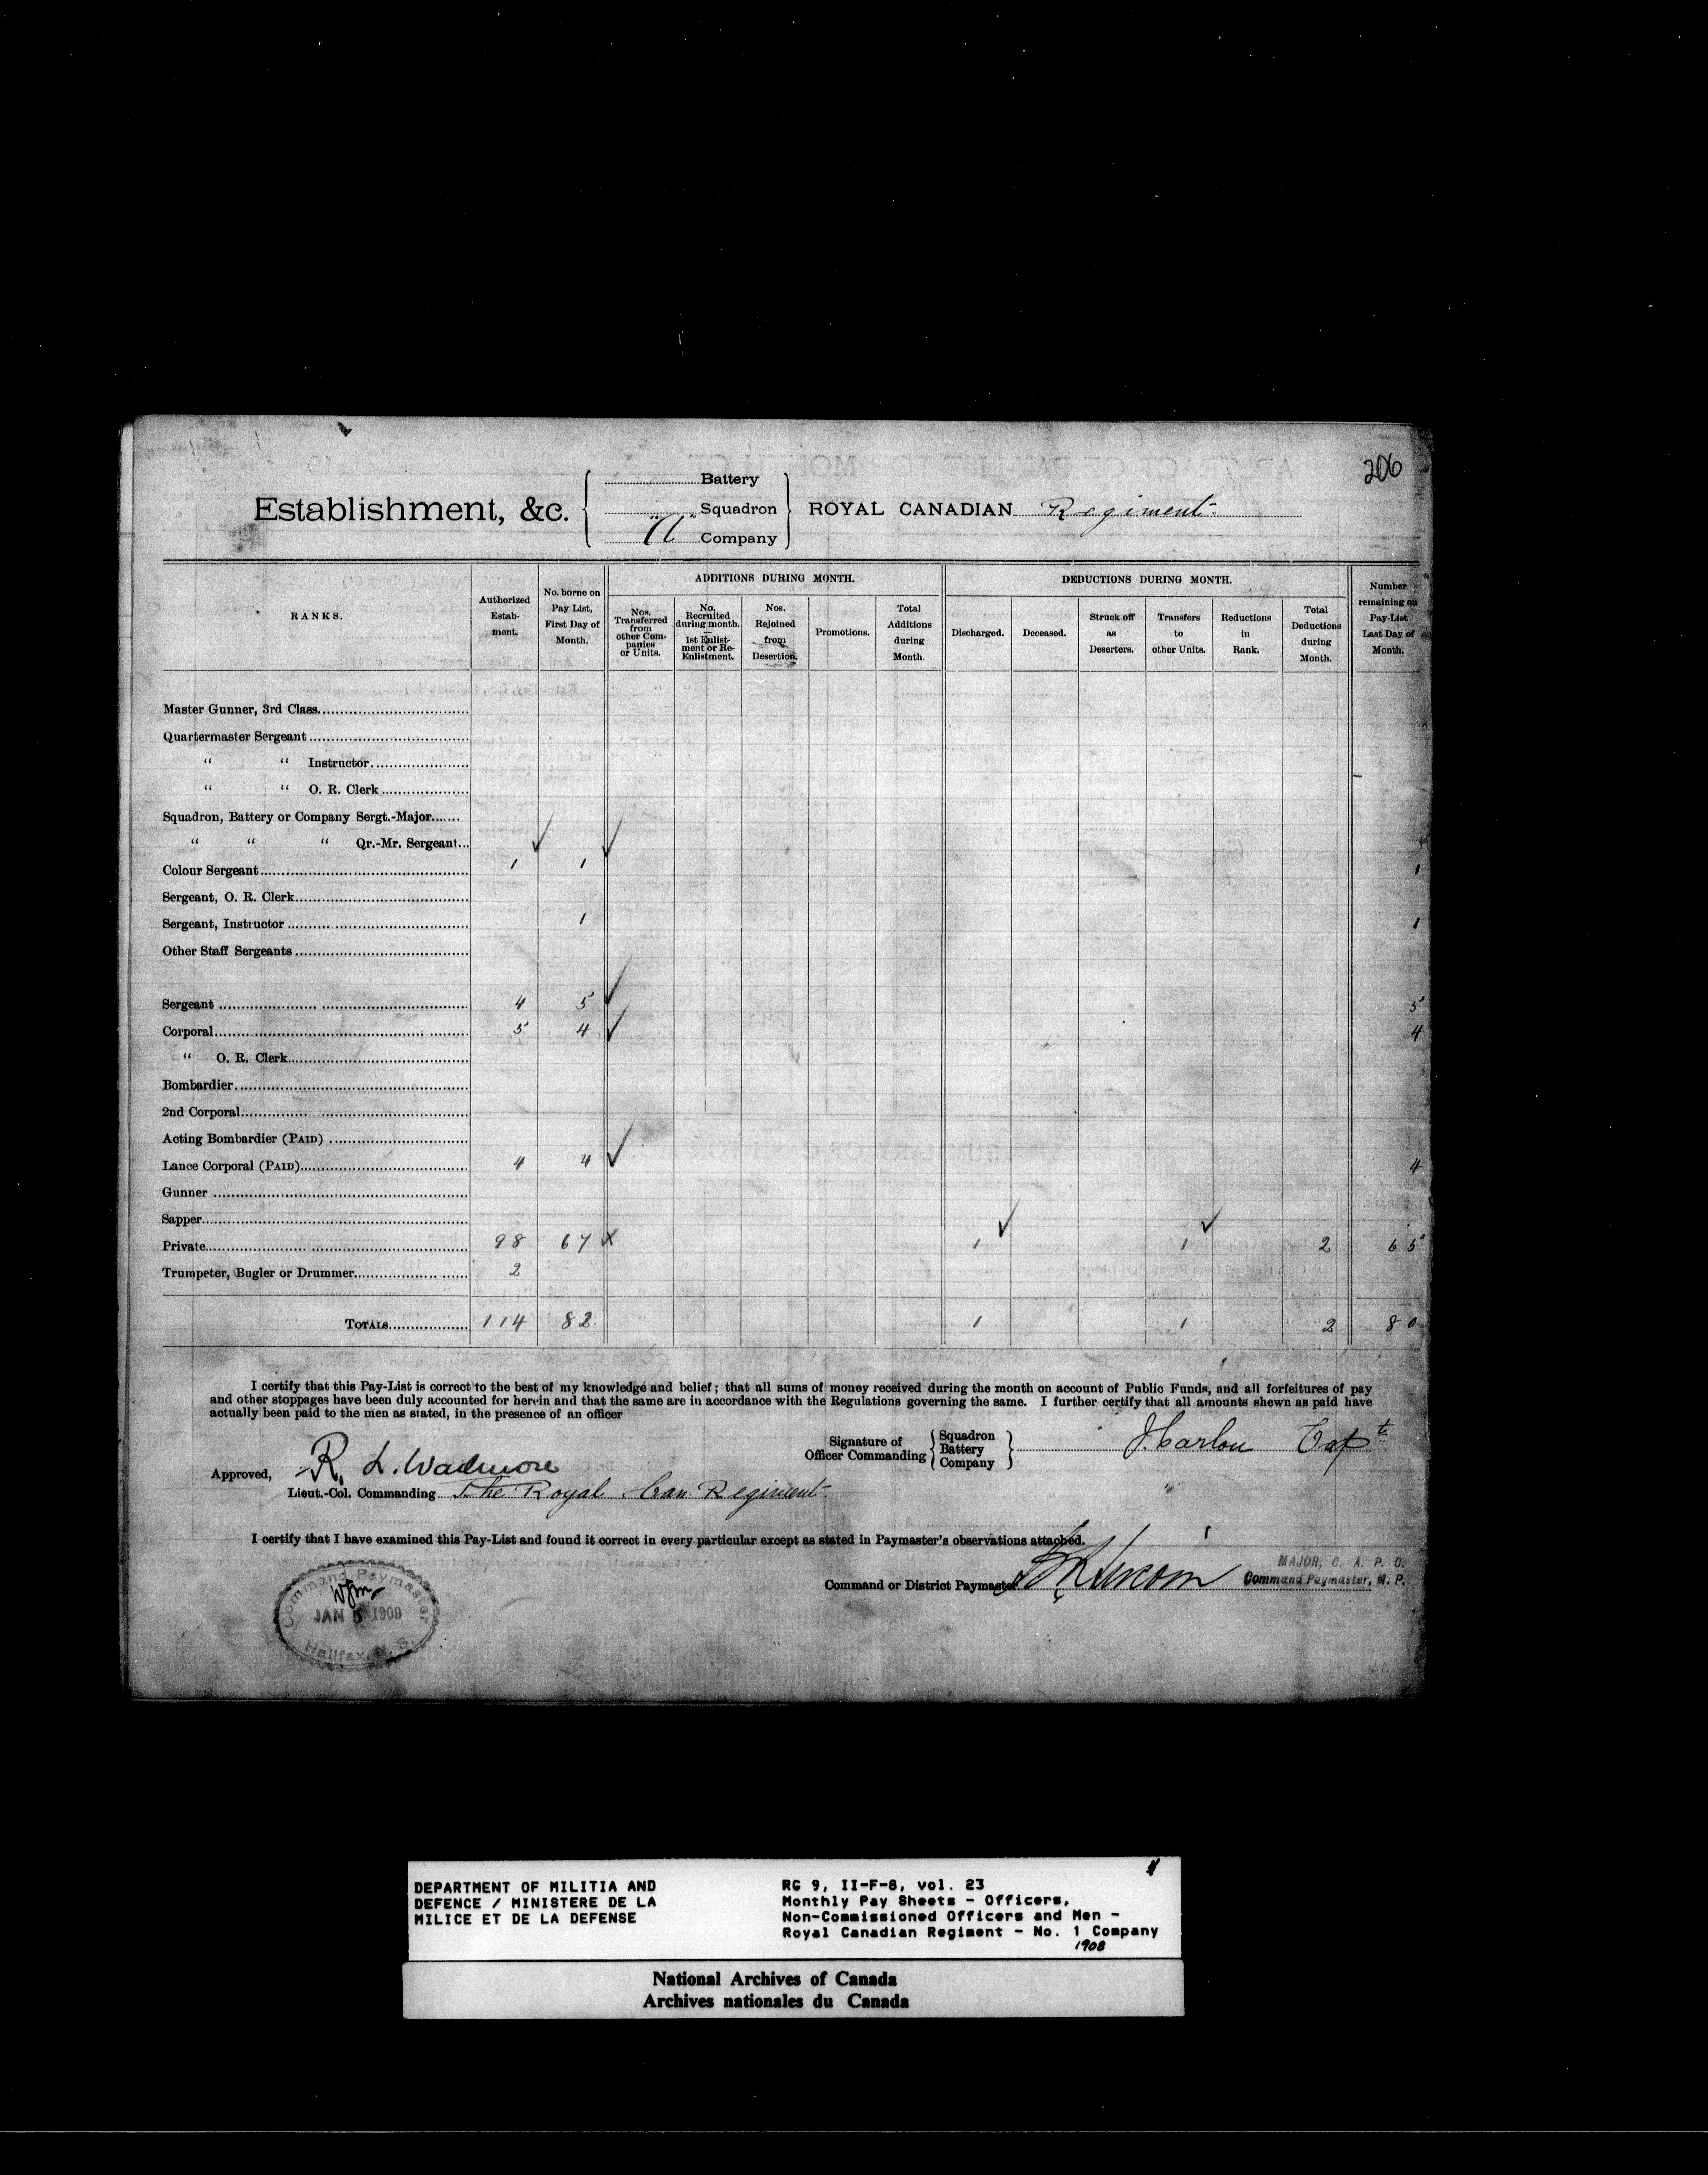 206
Establishment, &c. { Battery Squadron "A" Company } ROYAL CANADIAN Regiment
RANKS. Authorized Estab-ment. No. borne on Pay List, First Day of Month. ADDITIONS DURING MONTH. Nos. Transferred from other Com-panies or Units. No. Recruited during month. — 1st Enlist-ment or Re-Enlistment. Nos. Rejoined from Desertion. Promotions. Total Additions during Month. DEDUCTIONS DURING MONTH. Discharged. Deceased. Struck off as Deserters. Transfers to other Units. Reductions in Rank. Total Deductions during Month. Number remaining on Pay-List Last Day of Month.
Master Gunner, 3rd Class
Quartermaster Sergeant
“ “ Instructor
“ “ O. R. Clerk
Squadron, Battery or Company Sergt.-Major
“ “ “ Qr.-Mr. Sergeant
Colour Sergeant 1 1 1
Sergeant, O. R. Clerk
Sergeant, Instructor 1 1
Other Staff Sergeants
Sergeant 4 5 5
Corporal 5 4 4
“ O. R. Clerk
Bombardier
2nd Corporal
Acting Bombardier (PAID)
Lance Corporal (PAID) 4 4 4
Gunner
Sapper
Private 98 67 1 1 2 65
Trumpeter, Bugler or Drummer 2
TOTALS 114 82 1 1 2 80
I certify that this Pay-List is correct to the best of my knowledge and belief; that all sums of money received during the month on account of Public Funds, and all forfeitures of pay
and other stoppages have been duly accounted for herein and that the same are in accordance with the Regulations governing the same. I further certify that all amounts shewn as paid have
actually been paid to the men as stated, in the presence of an officer
Signature of Officer Commanding { Squadron Battery Company } J. Carlon Capt
Approved, R. L. Wadmore
Lieut.-Col. Commanding The Royal Can Regiment
I certify that I have examined this Pay-List and found it correct in every particular except as stated in Paymaster's observations attached.
Command or District Paymaster
MAJOR, C. A. P. C.
Command Paymaster, M. P.
Command Paymaster
JAN 5 1909
Halifax, N. S.
DEPARTMENT OF MILITIA AND
DEFENCE / MINISTERE DE LA
MILICE ET DE LA DEFENSE
RG 9, II-F-8, vol. 23
Monthly Pay Sheets - Officers,
Non-Commissioned Officers and Men -
Royal Canadian Regiment - No. 1 Company
1908
National Archives of Canada
Archives nationales du Canada